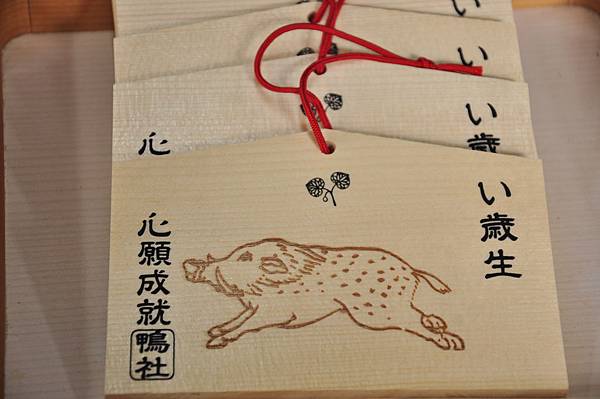 い
い
い歳
心
い歳生
心願成就
鴨社